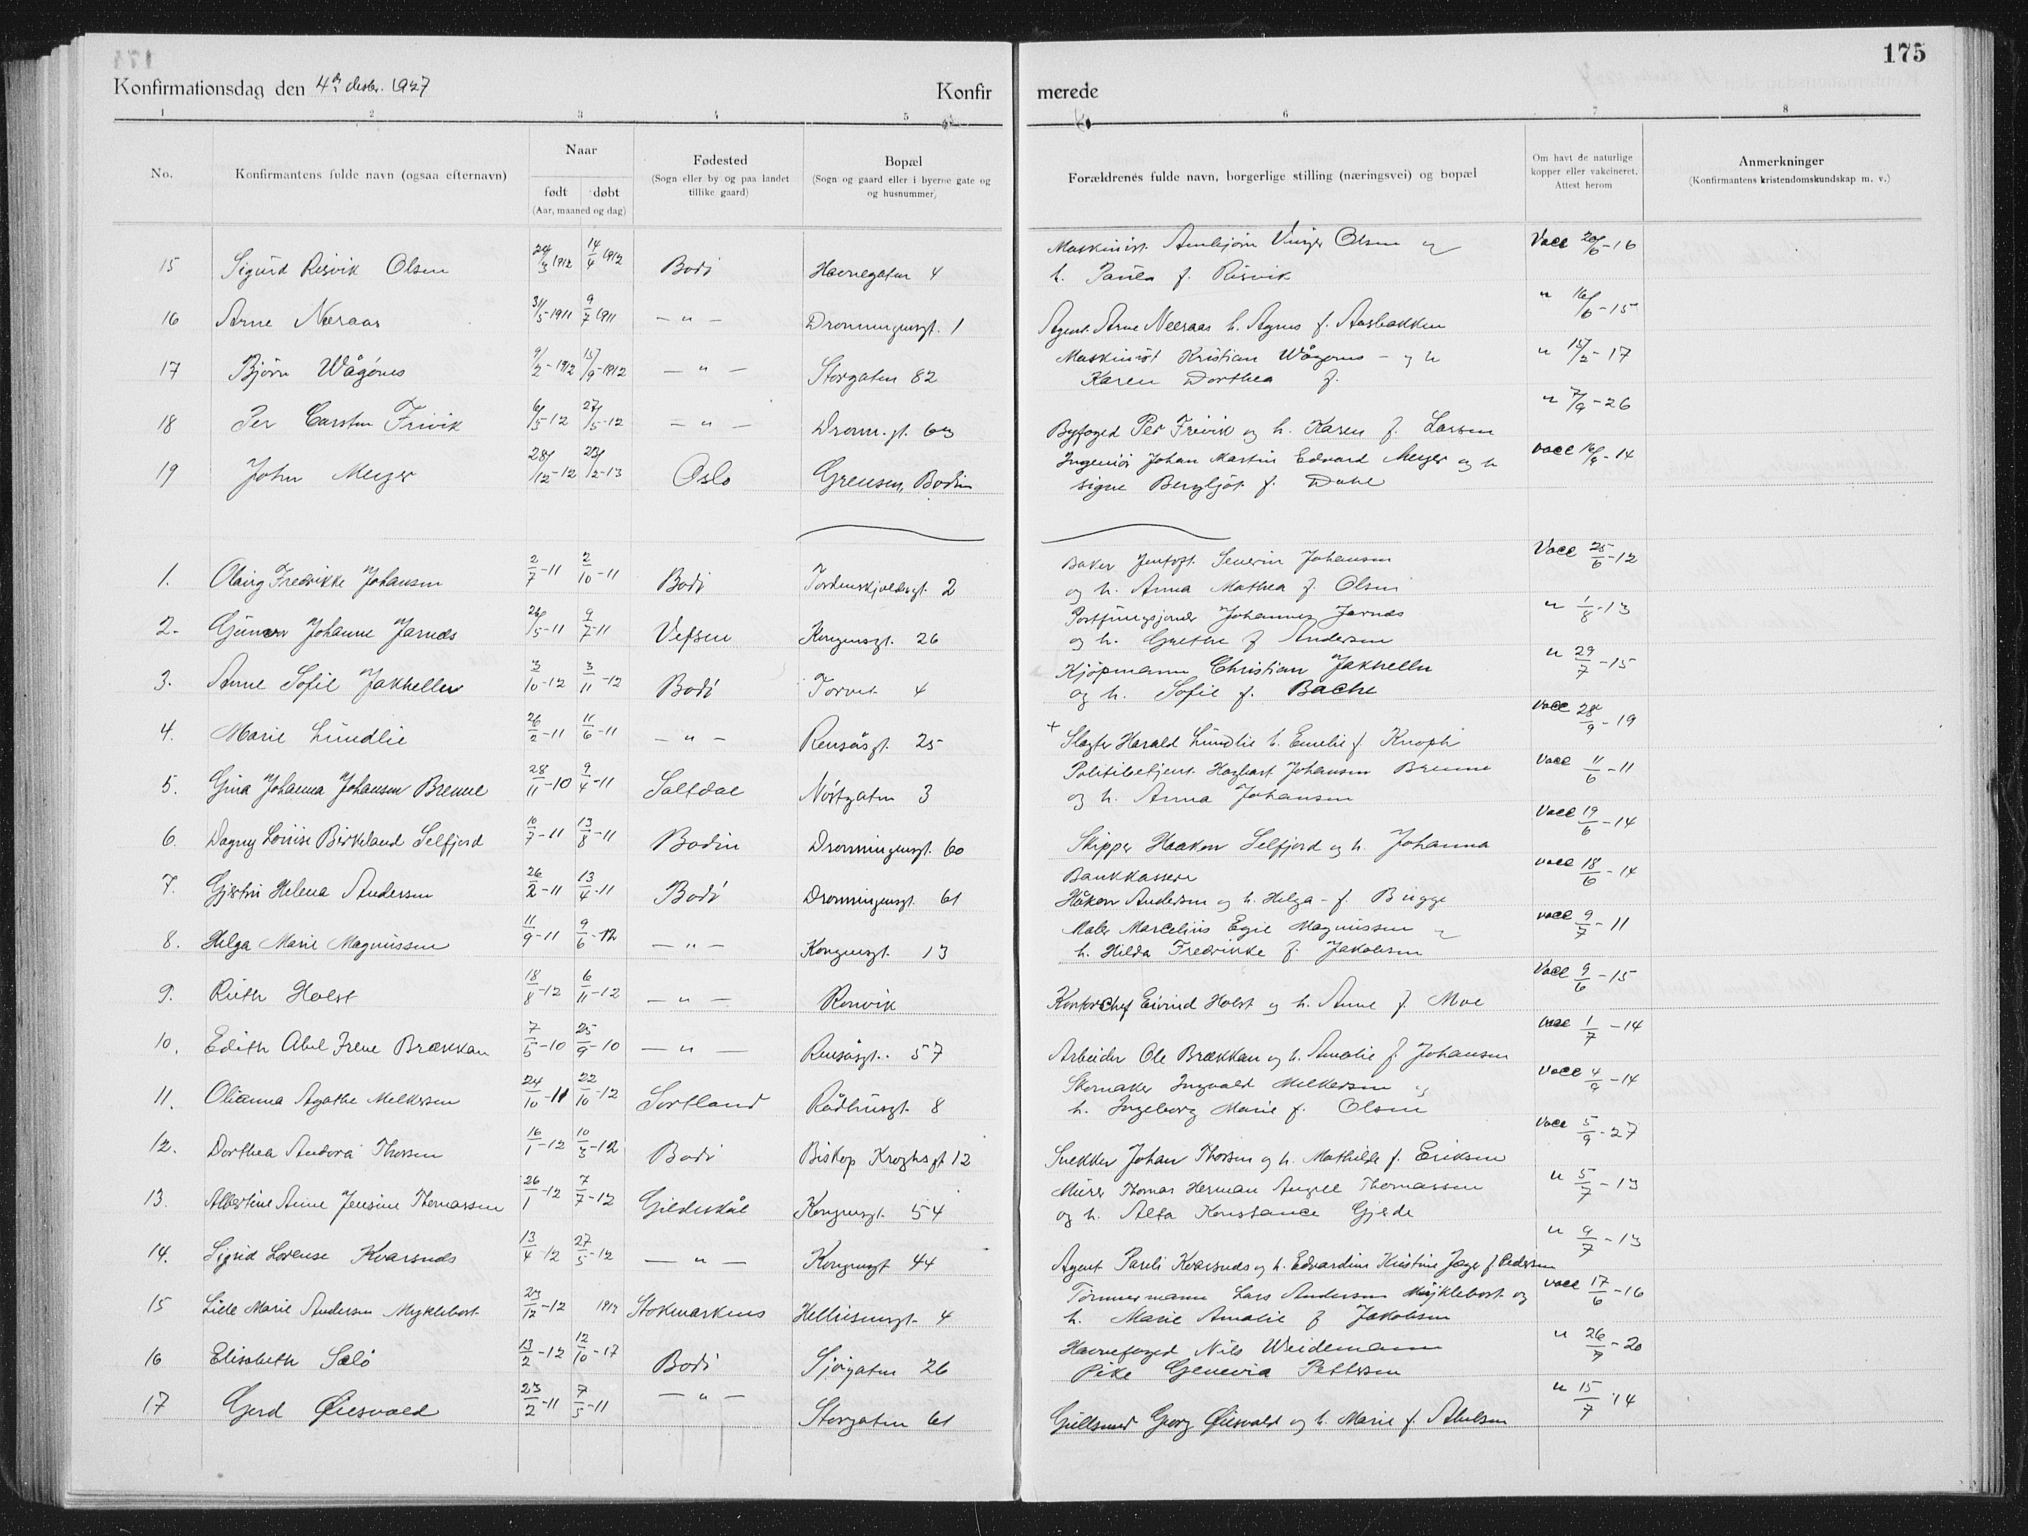 175
Konfirmationsdag den 4de desbr. 1927
Konfir merede
1 2 3 4 5 6 7 8
No.
Konfirmantens fulde navn (ogsaa efternavn)
Naar
født døbt
(Aar, maaned og dag)
Fødested
(Sogn eller by og paa landet
tillike gaard)
Bopæl
(Sogn og gaard eller i byerne gate og
og husnummer)
Forældrenes fulde navn, borgerlige stilling (næringsvei) og bopæl
Om havt de naturlige
kopper eller vakcineret.
Attest herom
Anmerkninger
(Konfirmantens kristendomskundskap m. v.)
15 Sigurd Risvik Olsen 24/3 1912 14/4 1912 Bodø Havnegaten 4 Maskinist Arnbjørn Olsen og Vacc 20/6-16
h. Paula f. Risvik
16 Arne Næraas 31/5-1911 9/7 1911 — " — Dronningensgt. 1 Agent Arne Næraas h. Agnes f. Aasbakken " 16/6-15
17 Bjørn Wågønes 9/2-1912 15/9-1912 — " — Storgaten 82 Maskinist Kristian Wågønes - og h " 15/2-17
Karen Dorthea f.
18 Per Carsten Frivik 6/5-12 27/5-12 — " — Dronn. gt. 63 Byfoged Per Frivik og h. Karen f. Larsen " 7/9-26
19 John Meyer 28/12-12 23/2-13 Oslo Grensen, Bodin Ingeniør Johan Martin Edvard Meyer og h vacc 16/9-14
Signe Bergljot f. Dahl
1. Olaug Fredrikke Johansen 2/7-11 2/10-11 Bodø Tordenskjoldsgt. 2 Baker Jentoft Severin Johansen Vacc 25/6-12
og h. Anna Mathea f. Olsen
2. Gunvor Johanne Jarnæs 26/5-11 9/7-11 Vefsen Kongensgt. 26 Johannes Jarnæs " 1/8-13
og h. Grethe f Andersen
3. Anne Sofie Jakhelln 3/10-12 3/11-12 Bodø Torvet 4 Kjøpmann Christian Jakhelln " 29/7-15
og h. Sofie f. Bache
4. Marie Lundlie 26/2-11 11/6-11 — " — Rensåsgt. 25 + Slagter Harald Lundlie h. Emelie f. Knoph vacc 28/9-19
5. Gina Johanna Johansen Brenne 28/11-10 9/4-11 Saltdal Nørtgaten 3 Politibetjent Hagbart Johansen Brenne vacc 11/6-11
og h. Anna Johansen
6. Dagny Louise Birkeland Selfjord 10/7-11 13/8-11 Bodin Dronningensgt. 60 Skipper Haakon Selfjord og h. Johanna vacc 19/6-14
7. Gjertru Helena Andersen 26/2-11 13/4-11 Bodø Dronningensgt. 61 Bankkasserer vacc 18/6-14
Håkon Andersen og h. Helga - f. Bugge
8. Helga Marie Magnussen 11/9-11 9/6-12 — " — Kongensgt. 13 Maler Marcelius Egil Magnussen og vacc 9/7-11
h. Hilda Fredrikke f. Jakobsen
9. Ruth Holst 18/8-12 6/11-12 — " — Rønvik Kontorchef Eivind Holst og h. Anne f. Moe Vacc 9/6-15
10. Edith Abel Irene Brækkan 7/5-10 25/9-10 — " — Rensåsgt. 57 Arbeider Ole Brækkan og h. Amalie f. Johansen vacc 1/7-14
11. Olianna Agathe Melkersen 24/10-11 22/10-12 Sortland Rådhusgt. 8 Skomaker Ingvald Melkersen og vacc 4/9-14
h. Ingeborg Marie f. Olsen
12. Dorthea Andora Thorsen 16/1-12 10/3-12 Bodø Biskop Kroghs gt 12 Snekker Johan Thorsen og h. Mathilde f. Eriksen vacc 5/9-27
13. Albertine Anne Jensine Thomassen 26/1-12 7/7-12 Gildeskål Kongensgt. 54 Murer Thomas Herman Angell Thomassen " 5/7-13
og h. Alfa Konstance Gjelde
14. Sigrid Lorense Kvarsnes 13/4-12 27/5-12 — " — Kongensgt 44 Agent Pareli Kvarsnes og h. Edvardine Kristine Jæger f. Pedersen " 9/7-13
15 Lilly Marie Andersen Myklebost 23/12-12 1913 Stokmarknes Hellesensgt. 4 Tømmermann Lars Andersen Myklebost og vacc 17/6-16
h. Marie Amalie f Jakobsen
16 Elisabeth Salø 13/2-12 12/10-17 Bodø Sjøgaten 26 Havnefoged Nils Weidemann " 26/7-20
Pike Genevia Pettersen
17 Gerd Øiesvold 23/2-11 7/5-11 — " — Storgaten 61 Gullsmed Georg Øiesvold og h. Marie f. Abelsen " 15/7-14